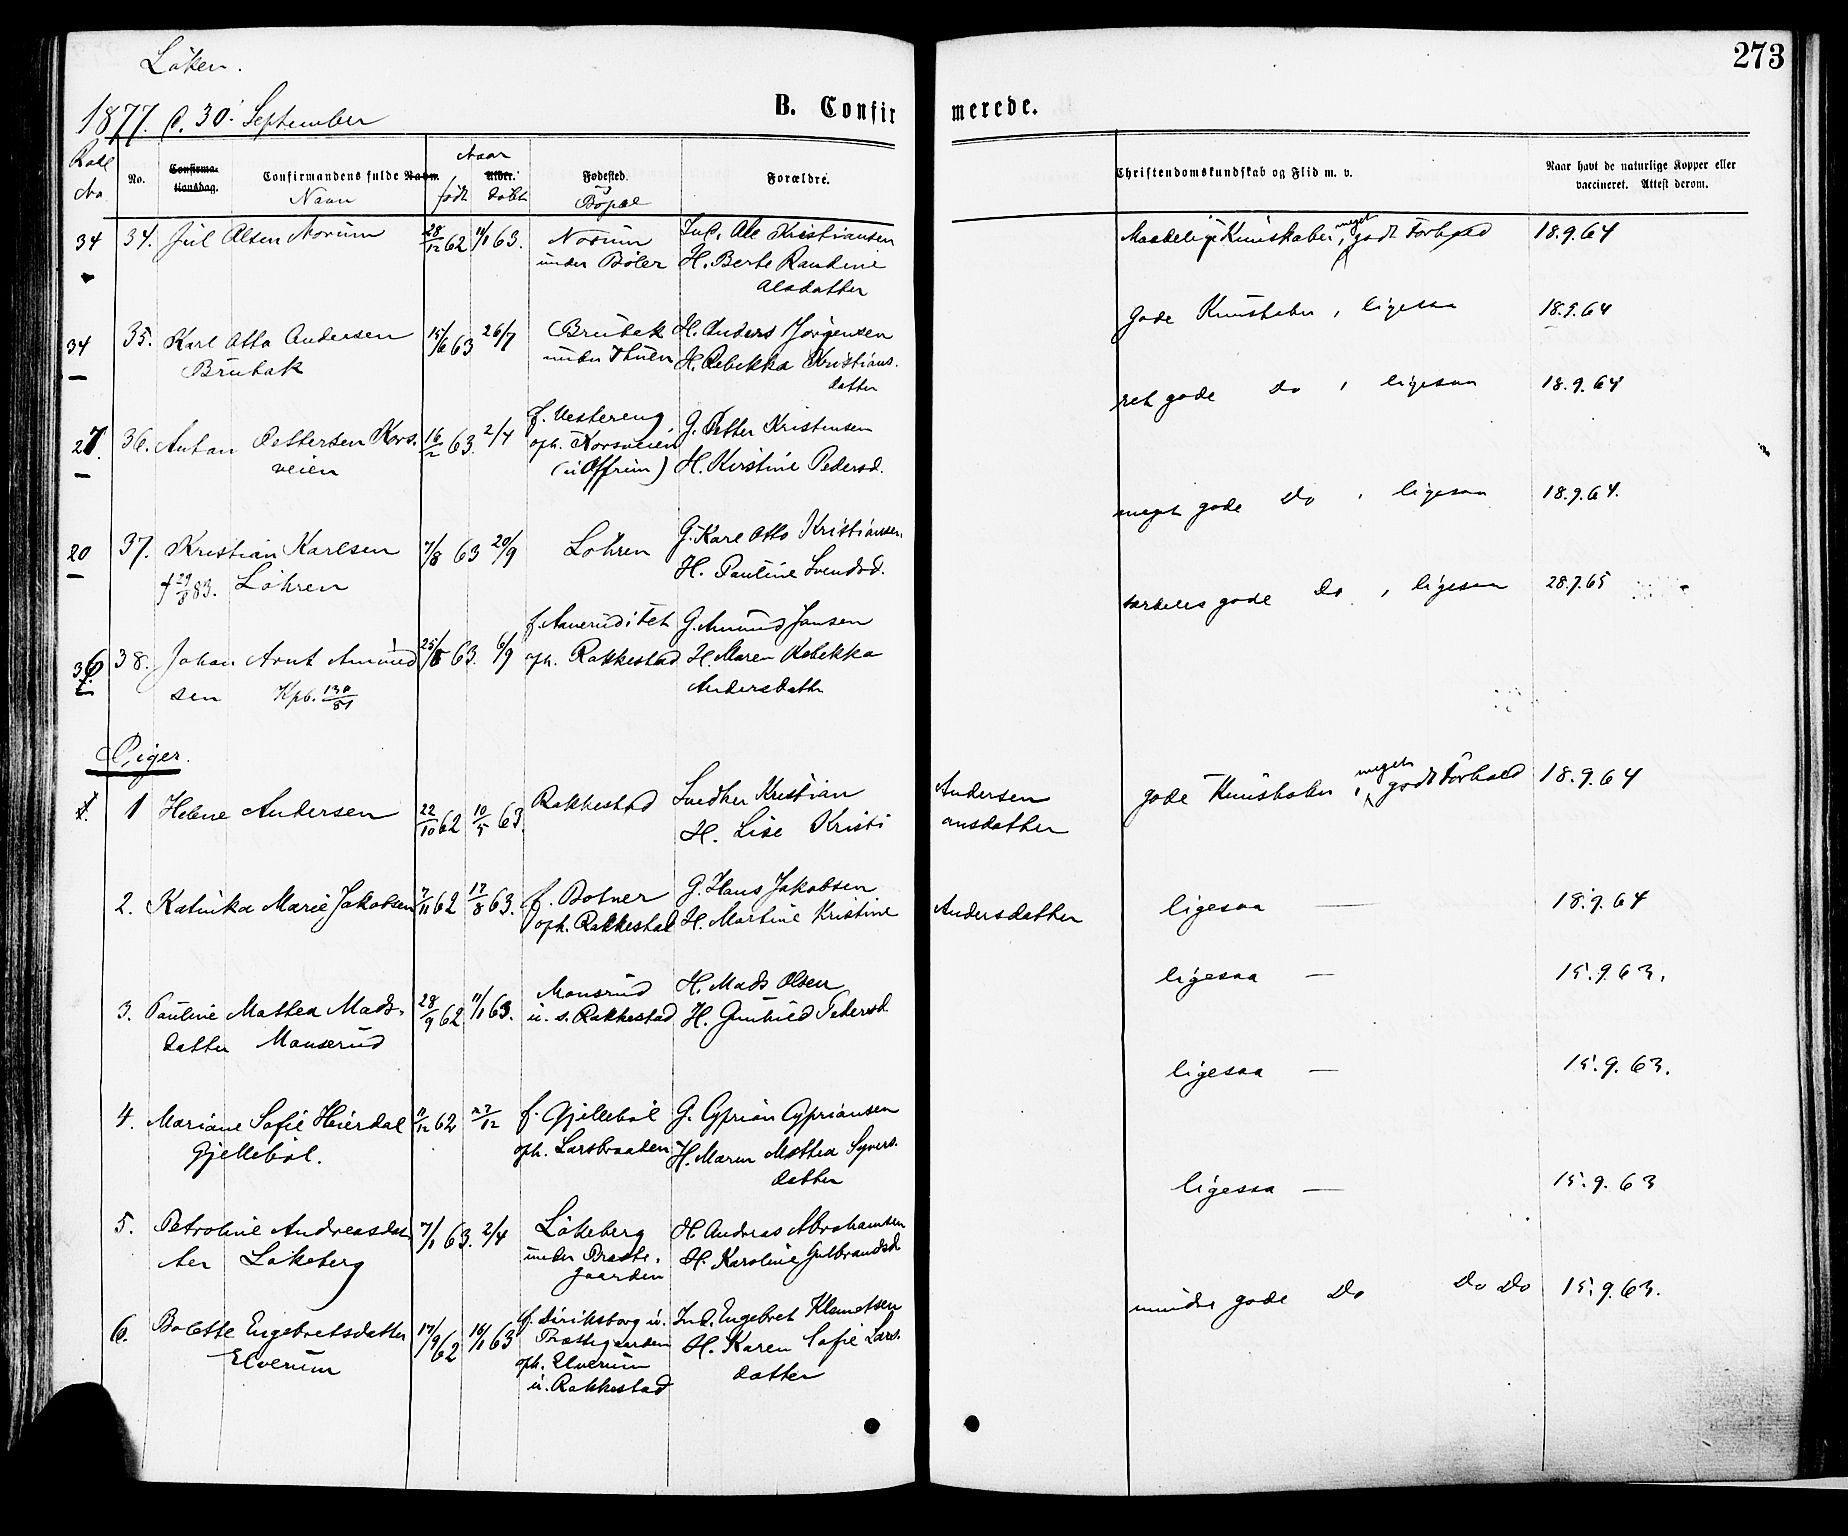 273
Löken.
1877. d. 30' September
B. Confirmerede.
Rode No
No.
Confirmationsdag.
Confirmandens fulde Navn.
Navn
Naar
Alder.
født
døbt
Fødested.
Bopæl
Forældre.
Christendomskundskab og Flid m. v.
Naar havt de naturlige Kopper eller
vaccineret. Attest derom.
34 34. Jul Olsen Norum 28/12 62 11/1 63. Norum Ind. Ole Kristiansen Maadelige Kunskaber, meget godt Forhold 18.9.64
under Böler H. Berte Randine
Olsdatter
34 35. Karl Otto Andersen 15/6 63 26/7 Brubak H. Anders Jörgensen Gode Kunskaber, ligesaa 18.9.64
Brubak under Thuen H. Rebekka Kristians.
datter
27. 36. Anton Pettersen Kors. 16/2 63 2/4 f. Vestereng, G. Petter Kristensen ret gode Do, ligesaa 18.9.64
veien oph. Korsveien H. Kirstine Pedersd.
(u Offrum)
20 37. Kristian Karlsen 7/8 63 20/9 Löhren G. Karl Otto Kristiansen meget gode Do, ligesaa 18.9.64.
† 29/8 83. Löhren H. Pauline Svendsd.
36 38. Johan Arnt Amund 25/8 63. 6/9 f. Aaserud i Tet G. Amund Jansen særdeles gode Do, ligesaa 28.7.65
sen Kpb. 130/81 oph. Rakkestad H. Maren Rebekka
Andersdattr
Piger.
1. 1 Helene Andersen 22/10 62 10/5 63. Rakkestad Snedker Kristian Andersen gode Kunskaber, meget godt Forhold 18.9.64
H. Lise Kristiansdatter
2. Katinka Marie Jakobsen 7/11 62 17/8 63. f. Botner G. Hans Jakobsen ligesaa — 18.9.64
oph. Rakkestad H. Martine Kristine Andersdatter
3. Pauline Mathea Mads- 28/9 62 11/1 63. Monsrud H. Mads Olsen ligesaa — 15.9.63.
datter Monserud u. s. Rakkestad H. Gunhild Pedersd.
4. Mariane Sofie Heierdal 11/12 62 27/12 f. Gjelleböl G. Cyprian Cypriansen ligesaa — 15.9.63.
Gjelleböl. oph. Larsbraaten H. Maren Mathea Syvers.
datter
5. Petroline Andreasdat 7/1 63. 2/4 Lökeberg H. Andreas Abrahamsen ligesaa — 15.9.63
ter Lökeberg under Præste. H. Karoline Gulbrandsd.
gaarden
6. Bolette Engebretsdatter 17/9 62 16/1 63 f. Diriksborg u. Ind. Engebret Klemetsen mindre gode Do Do Do 15.9.63.
Elverum Præstegaarden H. Karen Sofie Lars.
oph. Elverum datter
u. Rakkestad